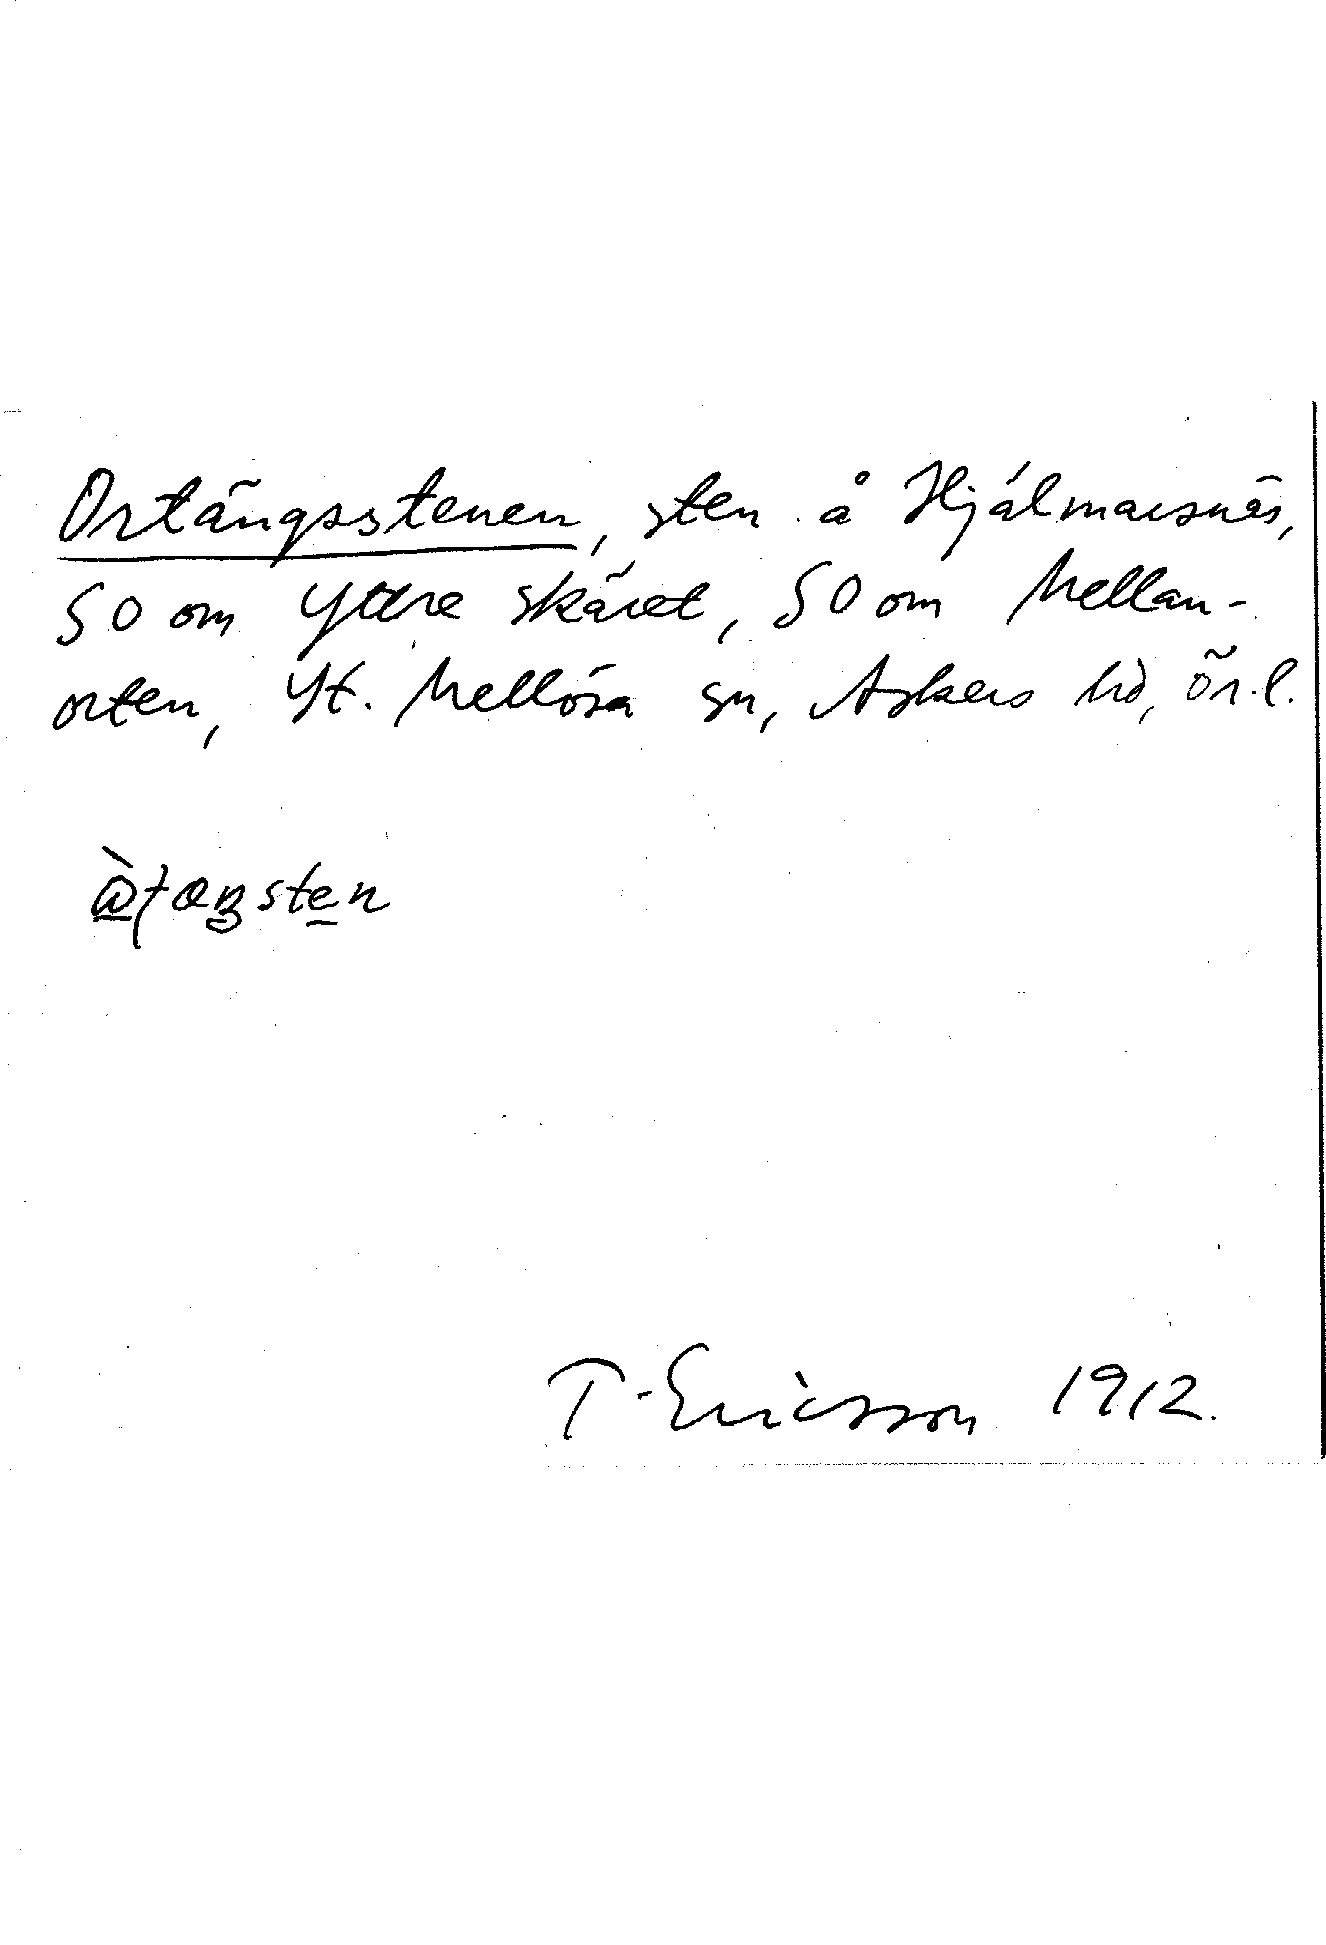 Ortängsstenen, sten å Hjälmarsnäs,
SO om Yttre skäret, SO om Mellan-
orten, St. Mellösa sn, Askers hd, Ör.l.
T. Ericsson 1912.